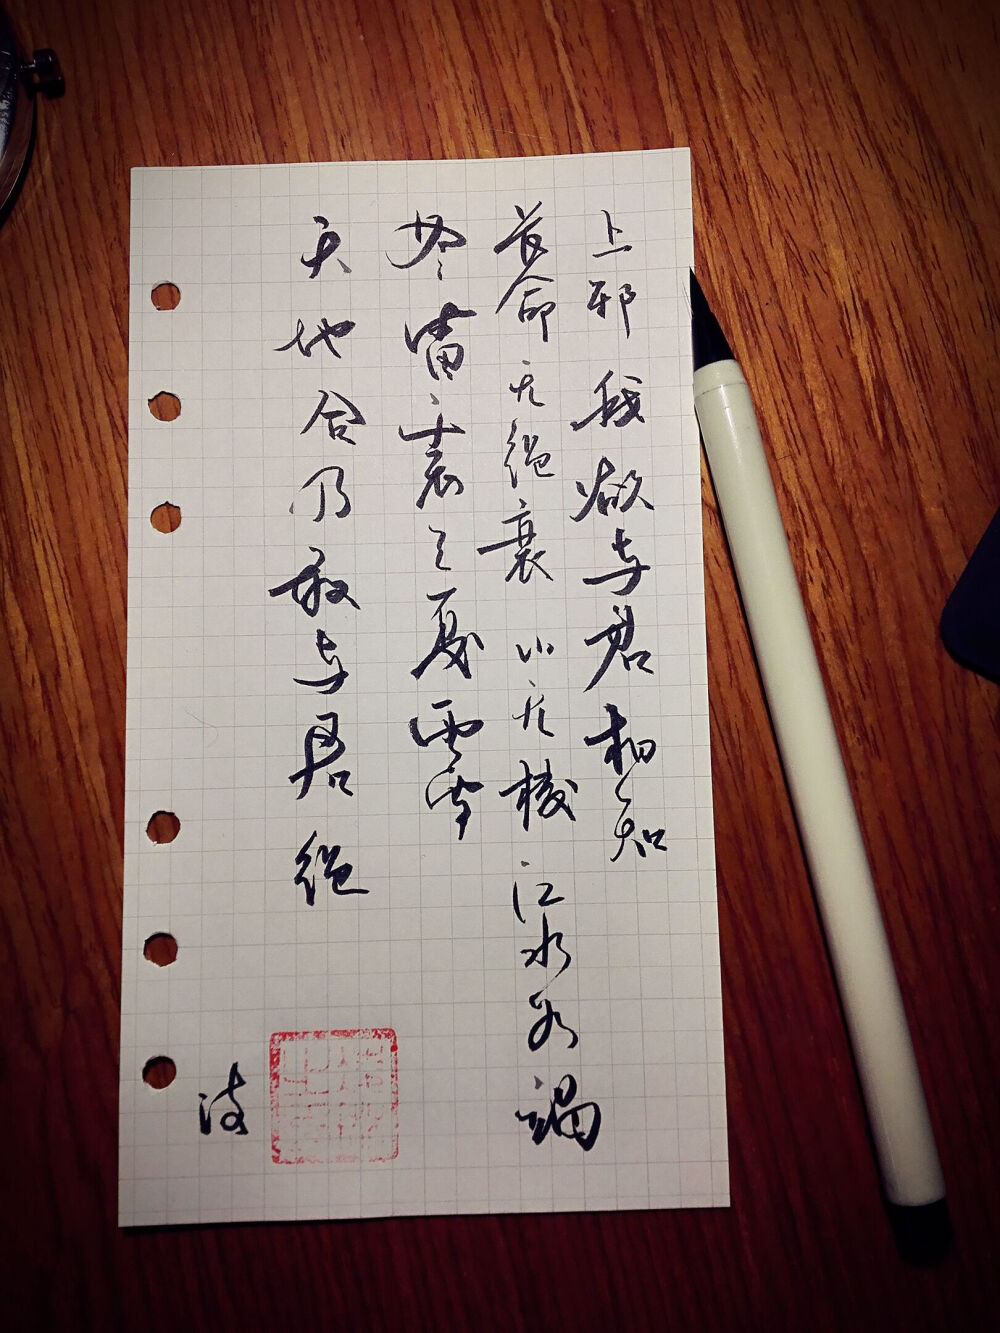 上邪我欲与君相知
长命无绝衰山无棱江水为竭
冬雷震々夏雨雪
天地合乃敢与君绝